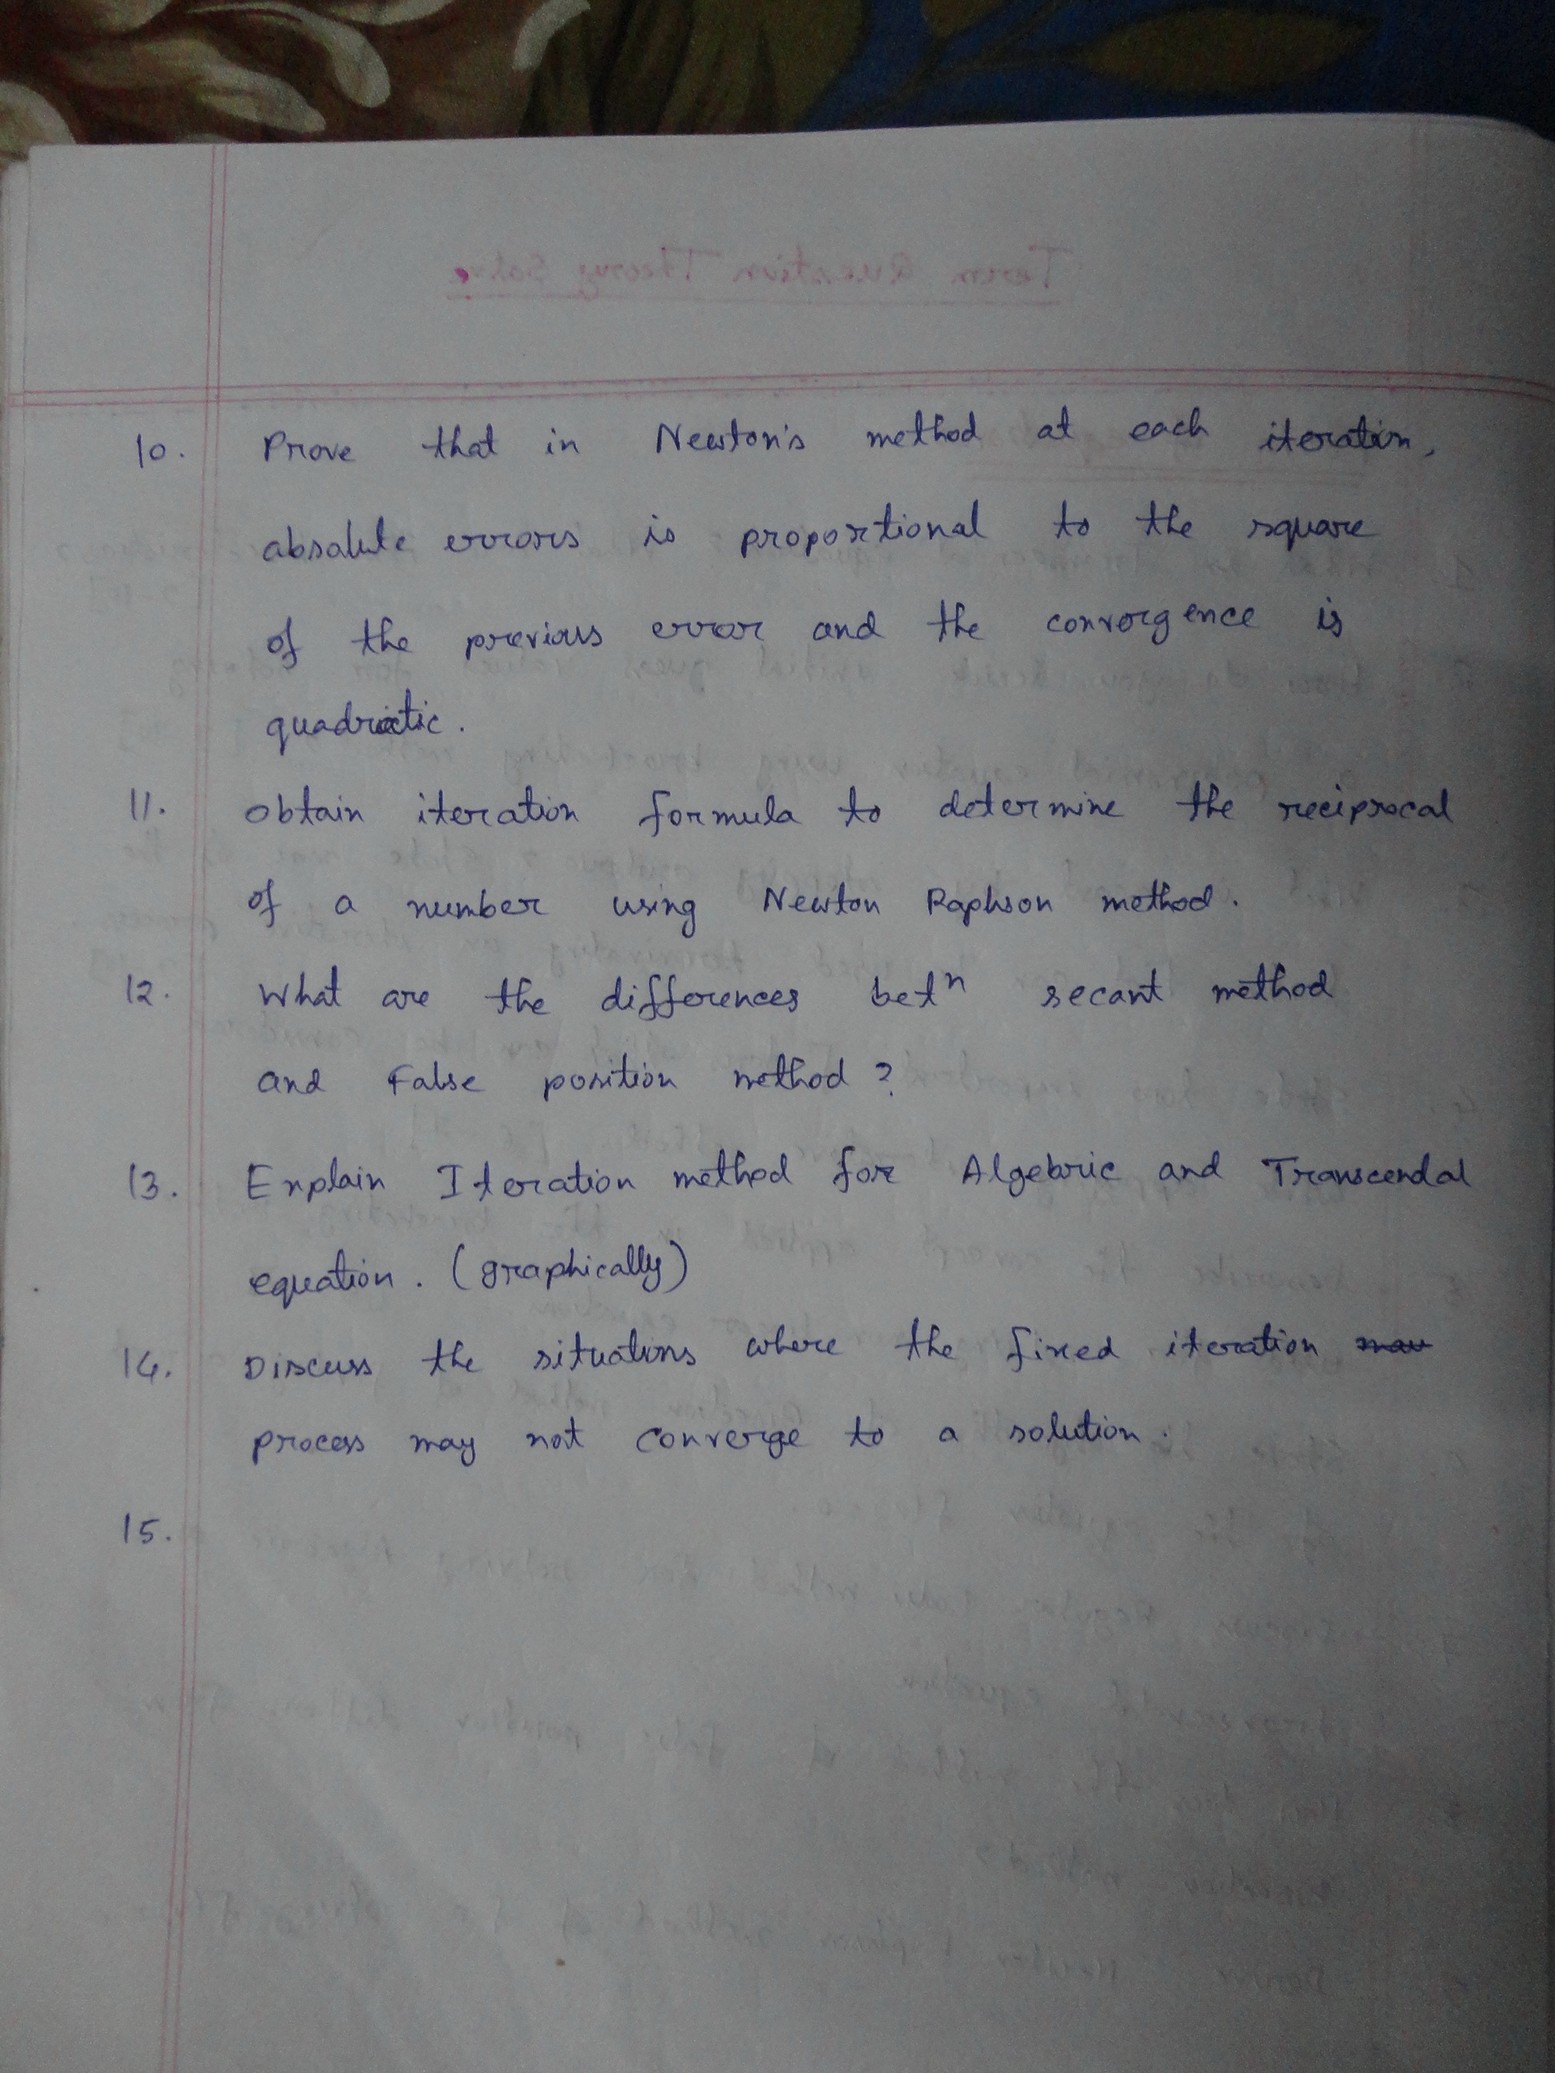 10. Prove that in Newton's method at each iteration,
absolute errors is proportional to the square
of the previous error and the convergence is
quadratic.
11. Obtain iteration formula to determine the reciprocal
of a number using Newton Raphson method.
12. What are the differences betⁿ secant method
and False position method?
13. Explain Iteration method for Algebric and Transcendal
equation. (graphically)
14. Discuss the situations where the fixed iteration
process may not converge to a solution.
15.